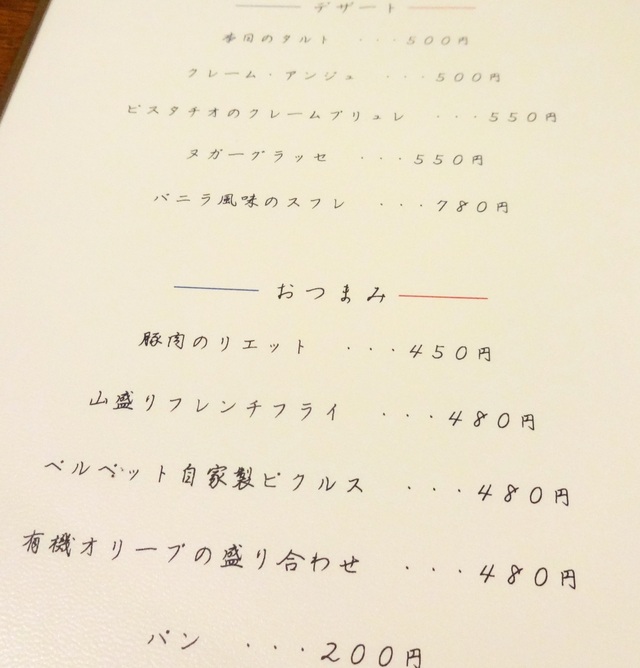 デザート
本日のタルト ・・・500円
クレーム・アンジュ ・・・500円
ピスタチオのクレームブリュレ ・・・550円
ヌガーグラッセ ・・・550円
バニラ風味のスフレ ・・・780円
おつまみ
豚肉のリエット ・・・450円
山盛りフレンチフライ ・・・480円
ベルベット自家製ピクルス ・・・480円
有機オリーブの盛り合わせ ・・・480円
パン ・・・200円